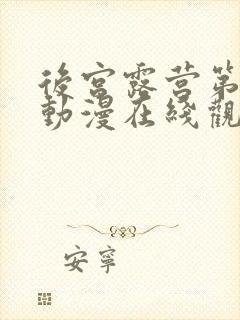 後宮露营第
動漫在綫觀
安寧